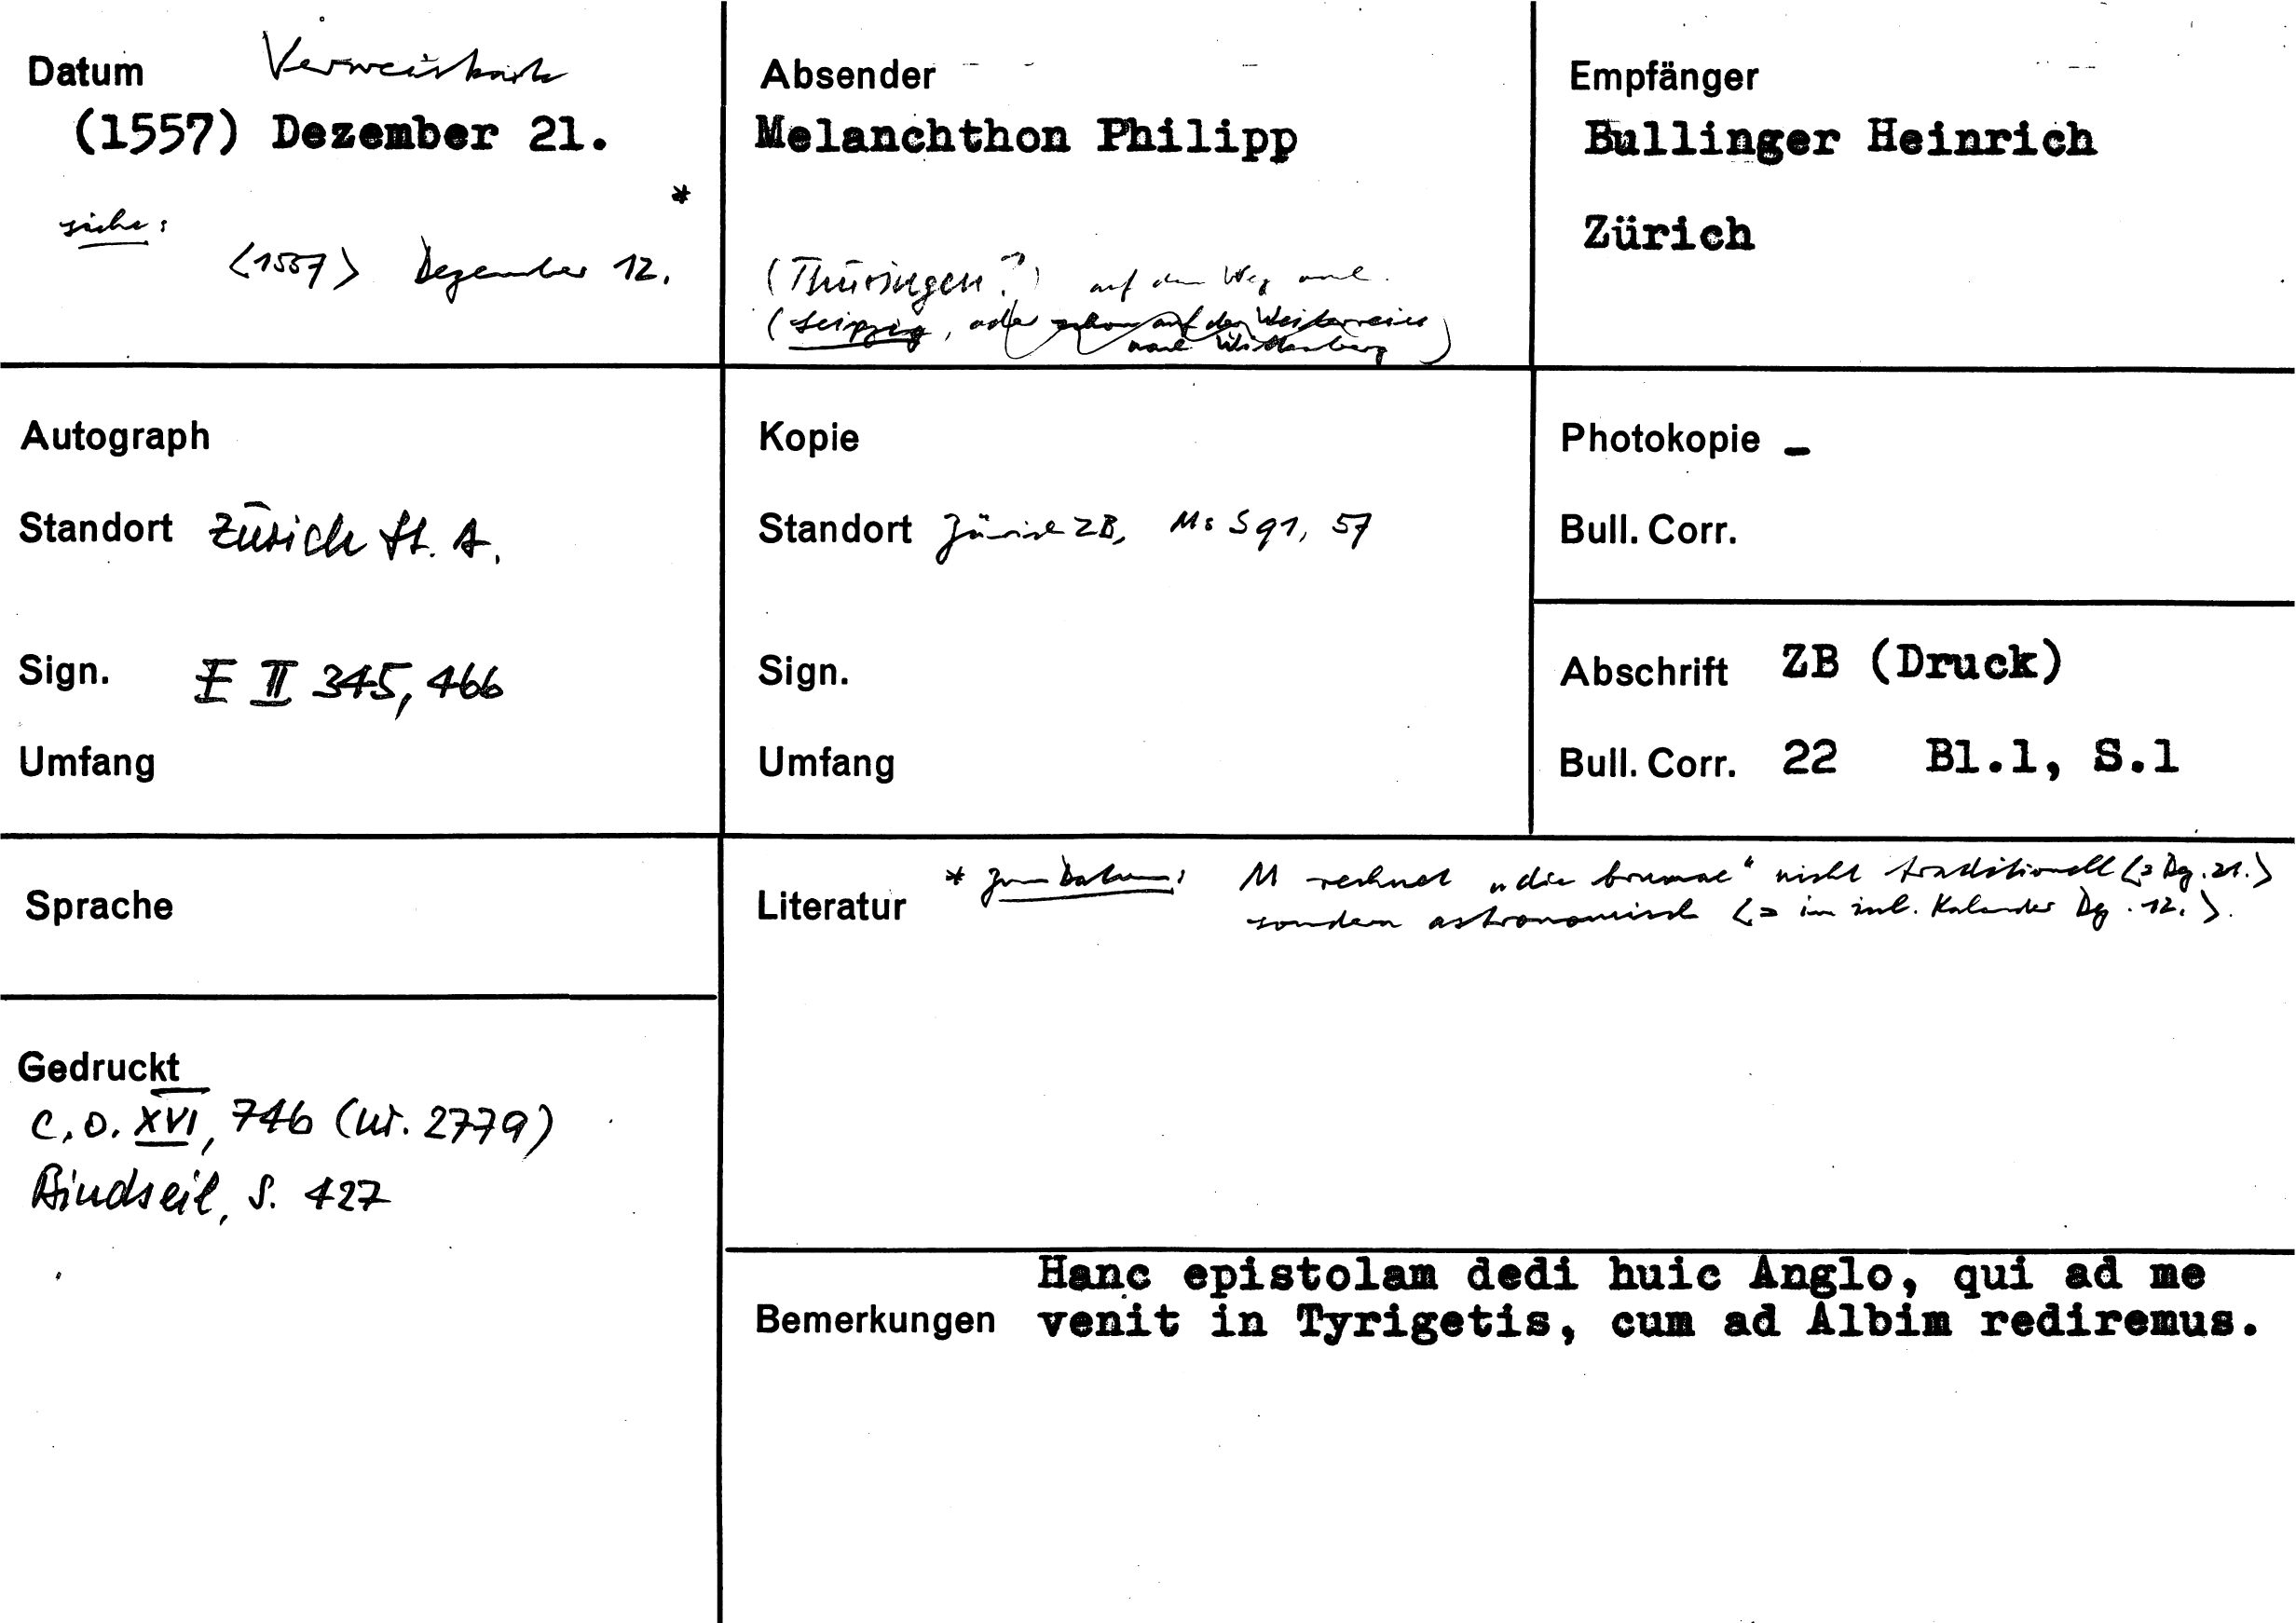 Datum Verweiskarte
(1557) Dezember 21.
*
siehe:
<1557> Dezember 12.
Absender
Melanchthon Philipp
(Thüringen?) auf dem Weg nach
(Leipzig, oder schon auf der Weiterreise
nach Wittenberg)
Empfänger
Bullinger Heinrich
Zürich
Autograph
Standort Zürich St. A.
Sign. E II 345, 466
Umfang
Kopie
Standort Zürich ZB, Ms S 91, 57
Sign.
Umfang
Photokopie -
Bull. Corr.
Abschrift ZB (Druck)
Bull. Corr. 22 Bl.1, S.1
Sprache
Gedruckt
C.O. XVI, 746 (Nr. 2779)
Bindseil, S. 427
Literatur * zum Datum: M rechnet „die brumae" nicht traditionell (= Dez. 21.)
sondern astronomisch (= im jul. Kalender Dez. 12.).
Bemerkungen Hanc epistolam dedi huic Anglo, qui ad me
venit in Tyrigetis, cum ad Albim rediremus.